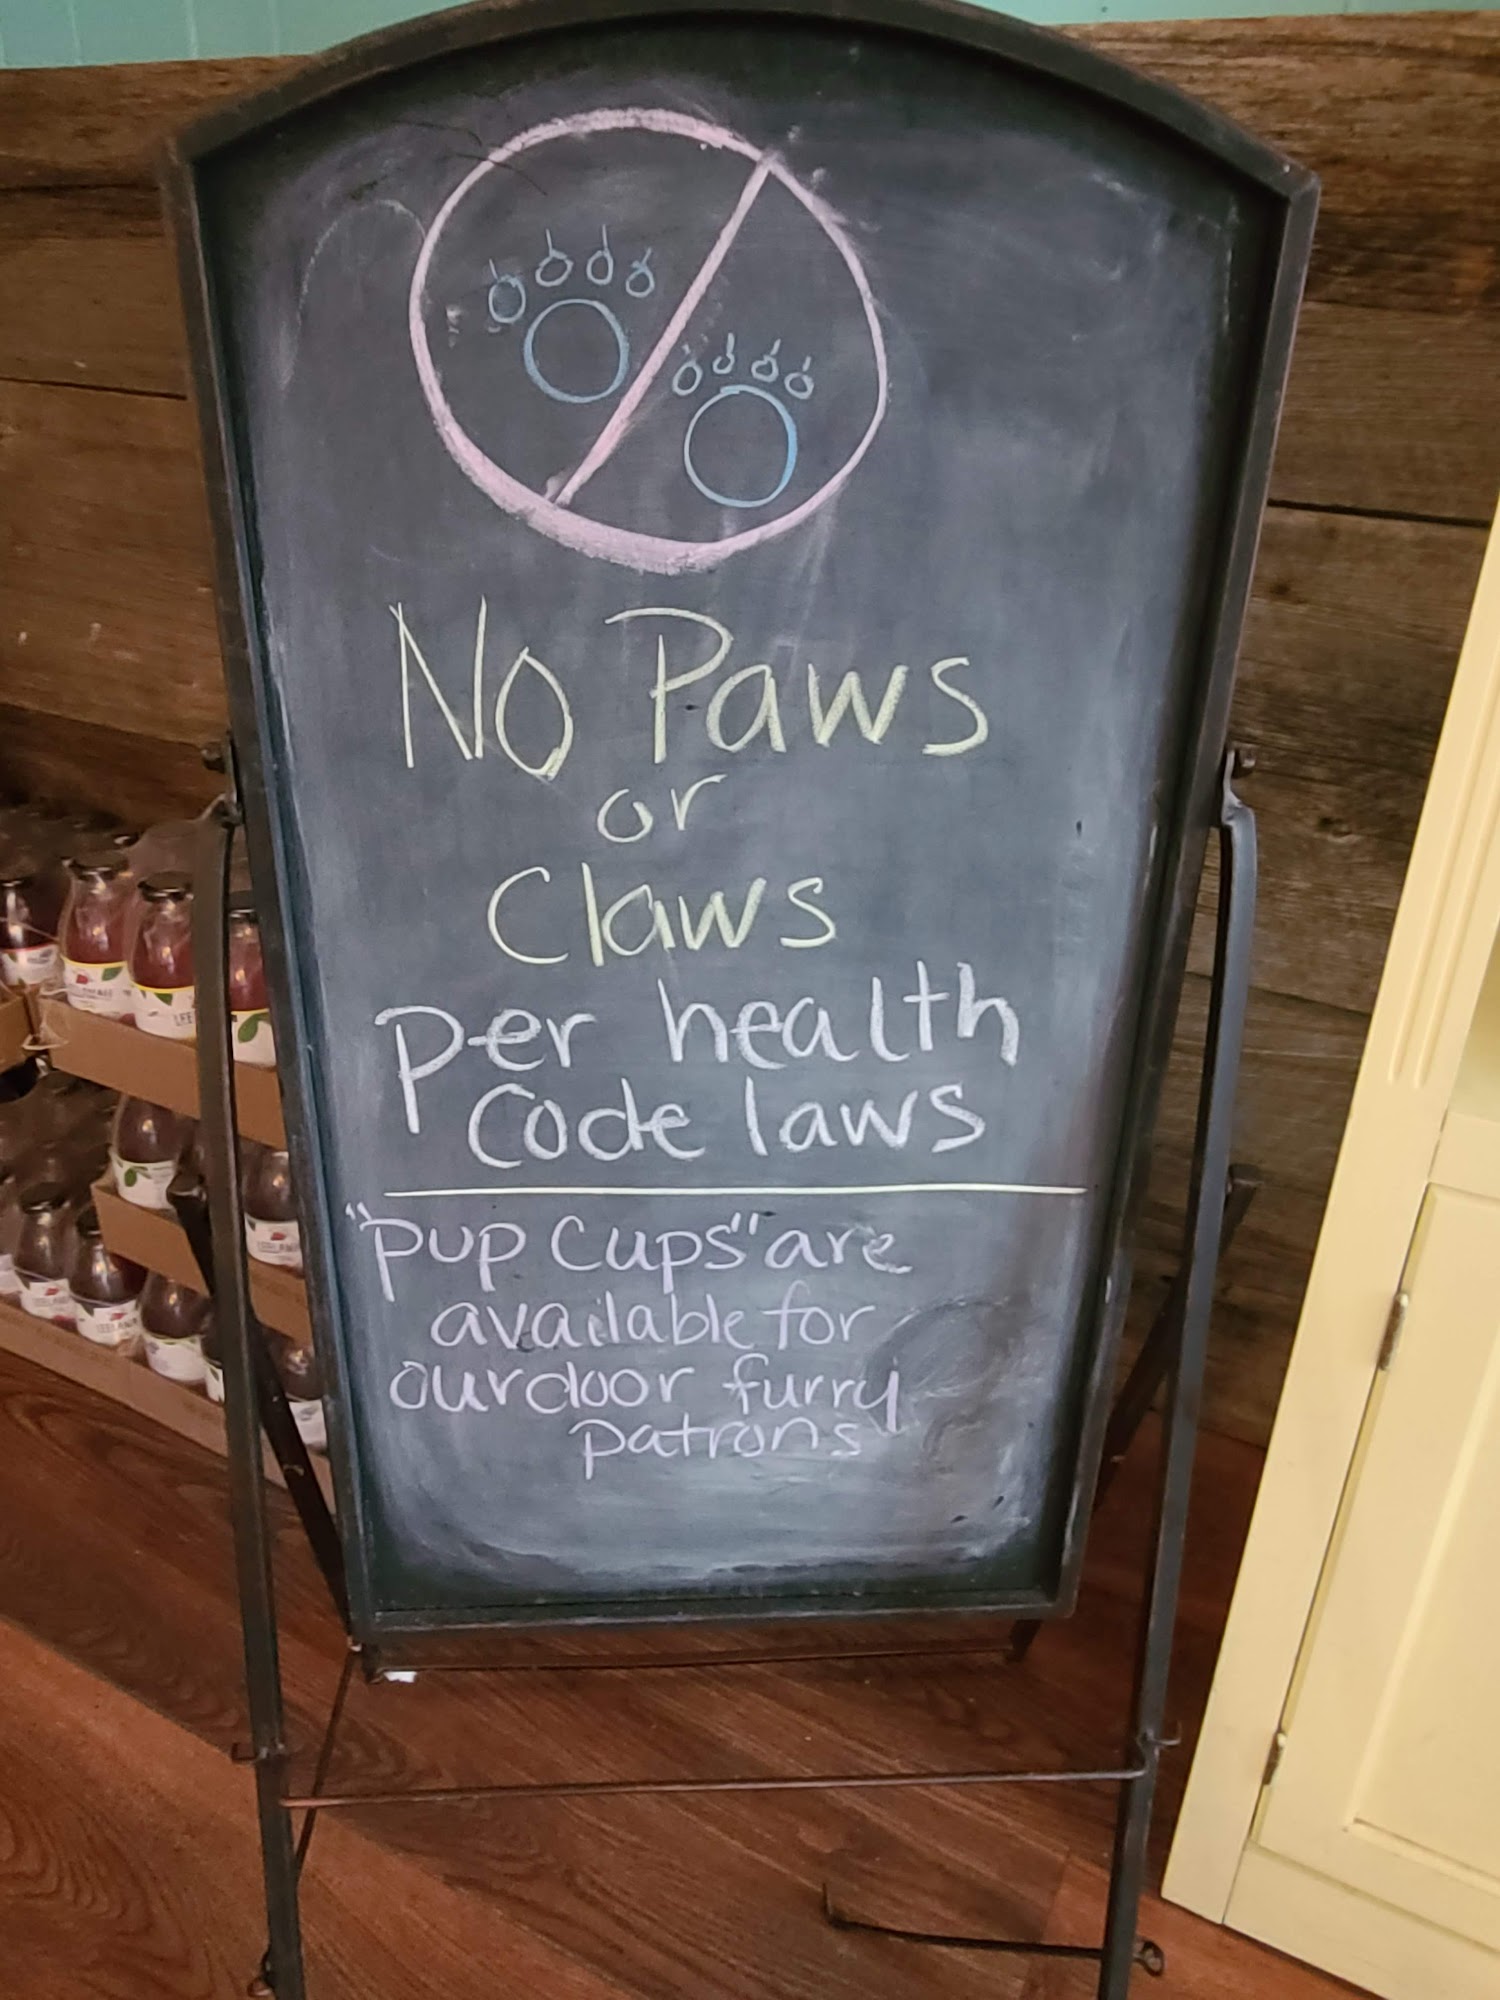 No Paws
or
Claws
per health
Code laws
"pup Cups" are
available for
ourdoor furry
patrons